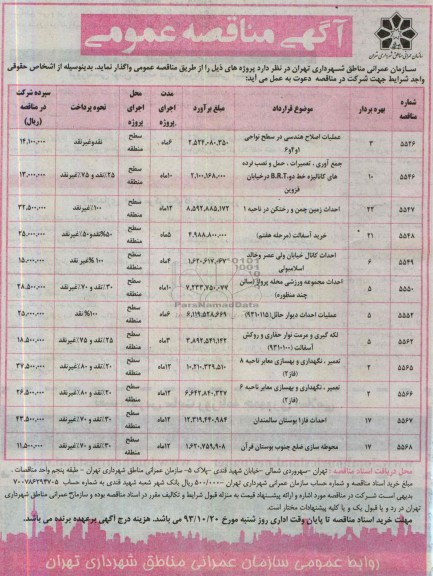 آگهی مناقصه عمومی
سازمان عمرانی مناطق شهرداری تهران در نظر دارد پروژه های ذیل را از طریق مناقصه عمومی واگذار نماید. بدینوسیله از اشخاص حقوقی
واجد شرایط جهت شرکت در مناقصه دعوت به عمل می آید:
شماره مناقصه بهره بردار موضوع قرارداد مبلغ برآورد مدت اجرای پروژه محل اجرای پروژه نحوه پرداخت سپرده شرکت در مناقصه (ریال)
۵۵۳۶ ۳ عملیات اصلاح هندسی در سطح نواحی ۱و۴و۶ ۲,۵۳۴,۰۸۰,۳۵۰ ۶ماه سطح منطقه نقدوغیرنقد ۱۴,۱۰۰,۰۰۰
۵۵۴۶ ۱۰ جمع آوری، تعمیرات، حمل و نصب نرده های کاتالیزه خط دو B.R.T درخیابان قزوین ۲,۱۰۰,۱۶۸,۰۰۰ ۱۰ماه سطح منطقه ۲۵٪نقد و ۷۵٪غیرنقد ۱۳,۰۰۰,۰۰۰
۵۵۴۷ ۲۲ احداث زمین چمن و رختکن در ناحیه ۱ ۸,۵۹۲,۸۸۵,۱۷۲ ۱۲ماه سطح منطقه ۱۰۰٪غیرنقد ۳۲,۵۰۰,۰۰۰
۵۵۴۸ ۲۱ خرید آسفالت (مرحله هفتم) ۴,۹۸۸,۸۰۰,۰۰۰ ۵ماه سطح منطقه ۵۰٪نقدو۵۰٪غیرنقد ۲۵,۰۰۰,۰۰۰
۵۵۴۹ ۶ احداث کانال خیابان ولی عصر وخالد اسلامبولی ۱,۶۲۰,۶۱۷,۰۶۷ ۴ماه سطح منطقه ۱۰۰ ٪غیر نقد ۱۵,۰۰۰,۰۰۰
۵۵۵۰ ۵ احداث مجموعه ورزشی محله پرواز(سالن چند منظوره) ۷,۲۳۳,۷۵۰,۰۷۷ ۱۰ماه سطح منطقه ۳۰٪نقد و ۷۰٪غیرنقد ۲۸,۵۰۰,۰۰۰
۵۵۵۲ ۵ عملیات احداث دیوار حائل(۹۳۱۰۱۱۵) ۶,۱۱۹,۵۲۸,۶۶۹ ۶ماه سطح منطقه ۱۰۰٪نقد ۲۵,۰۰۰,۰۰۰
۵۵۶۲ ۵ لکه گیری و مرمت نوار حفاری و روکش آسفالت (۹۳۱۰۱۰۰) ۳,۸۹۲,۵۴۱,۱۲۲ ۳ماه سطح منطقه ۲۵٪نقد و ۷۵٪غیرنقد ۱۸,۵۰۰,۰۰۰
۵۵۶۵ ۲ تعمیر، نگهداری و بهسازی معابر ناحیه ۸ (فاز۲) ۱۰,۲۱۰,۳۲۹,۵۱۰ ۱۲ماه سطح منطقه ۲۰٪نقد و ۸۰٪غیرنقد ۳۷,۵۰۰,۰۰۰
۵۵۶۶ ۲ تعمیر، نگهداری و بهسازی معابر ناحیه ۶ (فاز۲) ۶,۶۴۲,۸۲۰,۳۲۷ ۱۲ماه سطح منطقه ۲۰٪نقد و ۸۰٪غیرنقد ۲۶,۵۰۰,۰۰۰
۵۵۶۷ ۱۷ احداث فاز۱ بوستان سالمندان ۱۲,۳۱۹,۴۴۰,۹۸۴ ۱۲ماه سطح منطقه ۳۰٪نقد و ۷۰٪غیرنقد ۴۳,۵۰۰,۰۰۰
۵۵۶۸ ۱۷ محوطه سازی ضلع جنوب بوستان قرآن ۱,۶۲۰,۷۵۹,۹۰۸ ۱۲ماه سطح منطقه ۳۰٪نقد و ۷۰٪غیرنقد ۱۱,۵۰۰,۰۰۰
محل دریافت اسناد مناقصه: تهران -سهروردی شمالی -خیابان شهید قندی -پلاک ۵- سازمان عمرانی مناطق شهرداری تهران - طبقه پنجم واحد مناقصات.
مبلغ خرید اسناد مناقصه و شماره حساب سازمان عمرانی مناطق شهرداری تهران: ۵۰۰/۰۰۰ ریال بانک شهر شعبه شهید قندی به شماره حساب ۷۰۰۷۸۶۲۹۳۷۰۵
بدیهی است شرکت در مناقصه مورد اشاره و ارائه پیشنهاد قیمت به منزله قبول شرایط و تکالیف مقرر در اسناد مناقصه بوده و سازمان عمرانی مناطق شهرداری
تهران در رد و یا قبول یک و یا کلیه پیشنهادات مختار است.
مهلت خرید اسناد مناقصه تا پایان وقت اداری روز شنبه مورخ ۹۳/۱۰/۲۰ می باشد. هزینه درج آگهی برعهده برنده می باشد.
روابط عمومی سازمان عمرانی مناطق شهرداری تهران
ParsNamadData